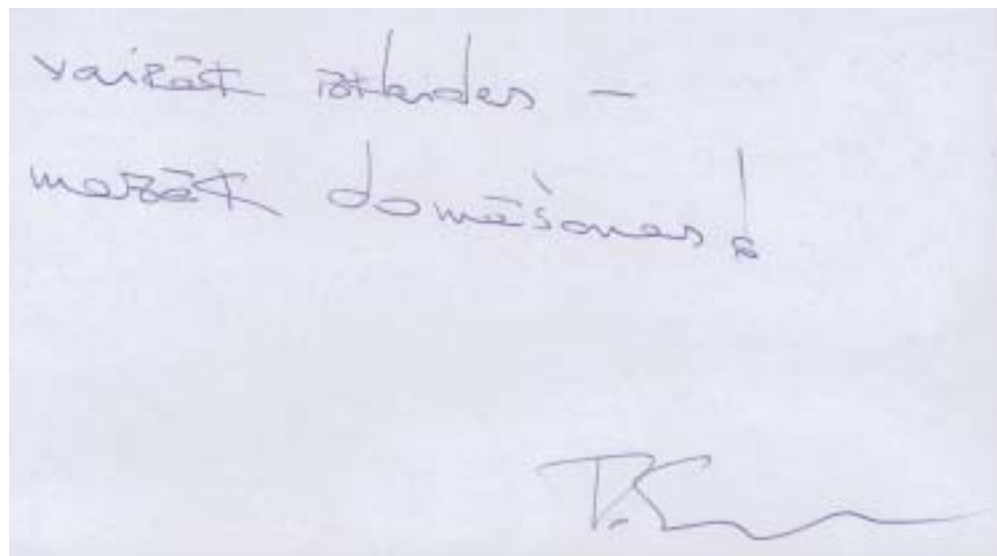 vairāk izklaides –
mazāk domāšanas!